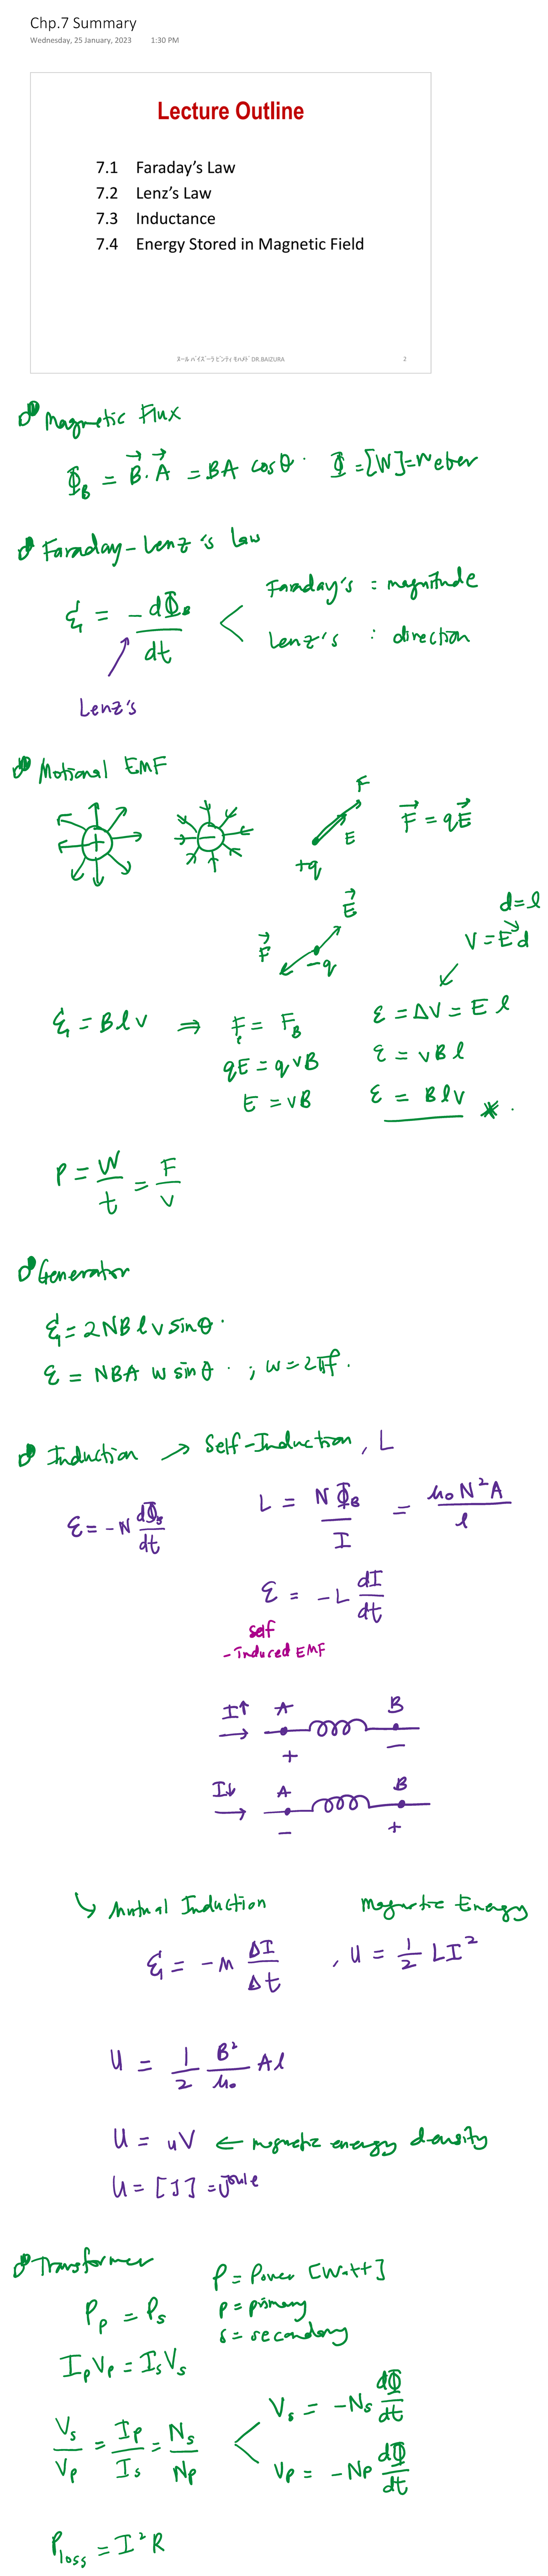 Chp.7 Summary
Wednesday, 25 January, 2023 1:30 PM
Lecture Outline
7.1 Faraday's Law
7.2 Lenz's Law
7.3 Inductance
7.4 Energy Stored in Magnetic Field
DR.BAIZURA 2
Magnetic Flux
Φ_B = B⃗ · A⃗ = BA cosθ · Φ = [W] = Weber
Faraday-Lenz's law
ℰ = -dΦ_B/dt < Faraday's : magnitude
Lenz's : direction
Lenz's
Motional EMF
+ - F E +q F⃗ = qE⃗
E⃗ F⃗ -q
d = l
V = E⃗d
ℰ = Blv ⇒ F_e = F_B ℰ = ΔV = El
qE = qvB ℰ = vBl
E = vB ℰ = Blv *
P = W/t = F/v
Generator
ℰ = 2NBlv sinθ
ℰ = NBA w sinθ ; w = 2πf
Induction → Self-Induction, L
ℰ = -N dΦ_B/dt L = NΦ_B/I = μ₀N²A/l
ℰ = -L dI/dt
self
-induced EMF
I↑ A B
→ + -
I↓ A B
→ - +
↳ Mutual Induction Magnetic Energy
ℰ = -M ΔI/Δt , U = 1/2 LI²
U = 1/2 B²/μ₀ Al
U = uV ← magnetic energy density
U = [J] = Joule
Transformer P = Power [Watt]
P_p = P_s p = primary
s = secondary
I_pV_p = I_sV_s
V_s/V_p = I_p/I_s = N_s/N_p < V_s = -N_s dΦ/dt
V_p = -N_p dΦ/dt
P_loss = I²R